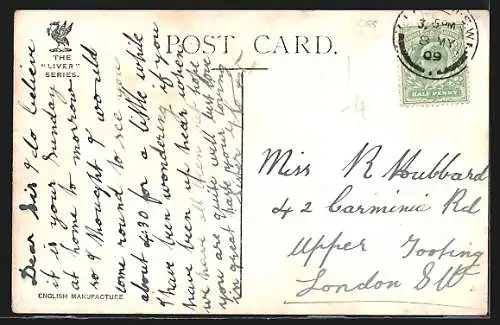 THE
"LIVER"
SERIES.
POST CARD.
3.15PM
MY
09
HALF PENNY
Dear Sis I do believe
it is your Sunday
at home to morrow
so I thought I would
come round to see you
about 4.30 for a little while
I have been wondering if you
have been up hear when
we have all been out hope
you are quite well best love
in great haste your loving
Miss R Hubbard
42 Carminia Rd
Upper Tooting
London S.W.
ENGLISH MANUFACTURE